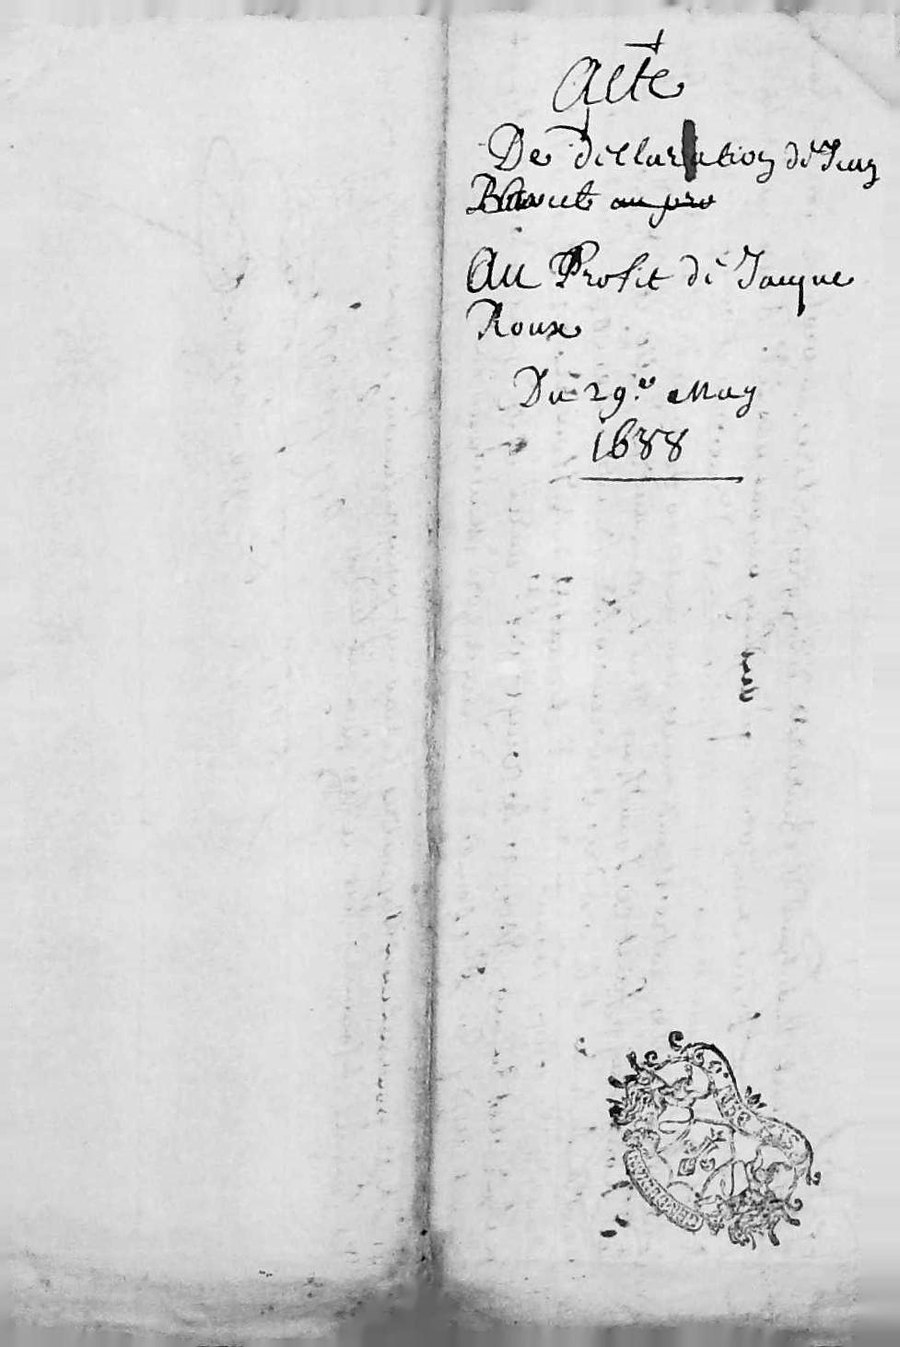 Acte
De declaration de Jean
Blanct au pro
Au Profit de Jacque
Roux
Du 29.e May
1688